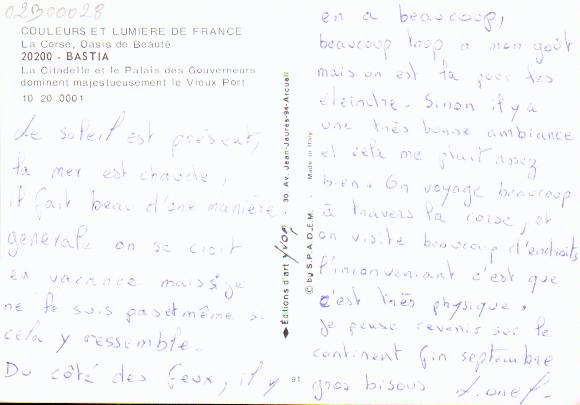 02B00028
COULEURS ET LUMIERE DE FRANCE
La Corse, Oasis de Beauté
20200 - BASTIA
La Citadelle et le Palais des Gouverneurs
dominent majestueusement le Vieux Port
10 20 0001
Le soleil est présent,
la mer est chaude,
il fait beau d'une manière
générale on se croit
en vacance mais je
ne le suis pas et même si
cela y ressemble.
Du côté des feux, il y
en a beaucoup,
beaucoup trop a mon goût
mais on est la pour les
éteindre. Sinon il y a
une très bonne ambiance
et cela me plait assez
bien. On voyage beaucoup
à travers la corse, et
on visite beaucoup d'endroits
l'inconvenient c'est que
c'est très physique.
Je pense revenir sur le
continent fin septembre
gros bisous Lionel.
Editions d'art YVON - 30, Av. Jean-Jaurès-94-Arcueil
© by S.P.A.D.E.M. Made in Italy
91